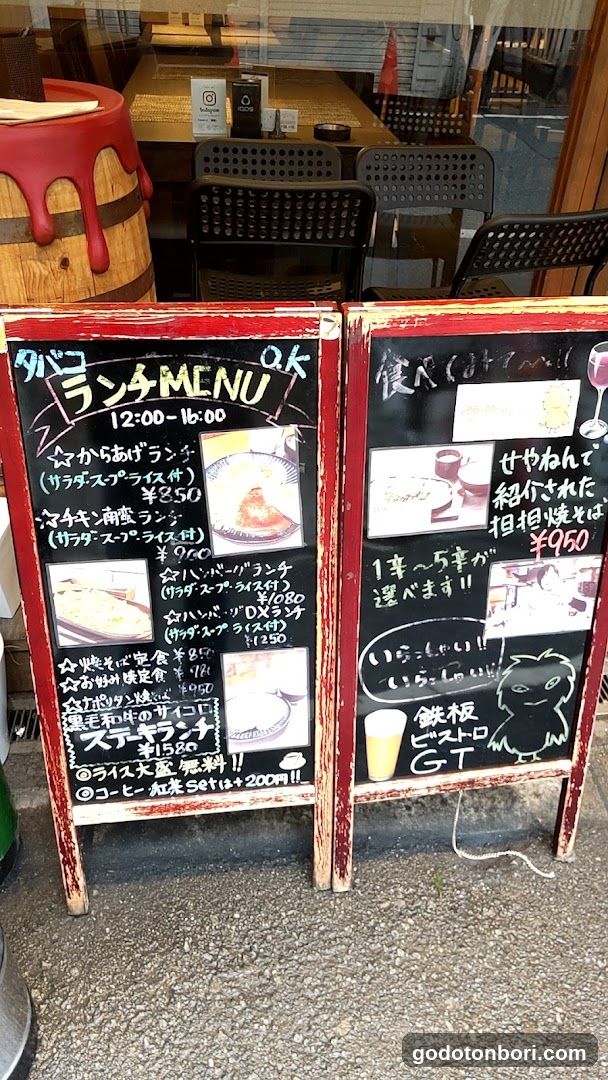 タバコ O.K
ランチMENU
12:00-16:00
☆からあげランチ
(サラダ・スープ・ライス付)
¥850
☆チキン南蛮ランチ
(サラダ・スープ・ライス付)
¥900
☆ハンバーグランチ
(サラダ・スープ・ライス付)
¥1080
☆ハンバーグDXランチ
(サラダ・スープ・ライス付)
¥1250
☆焼そば定食 ¥850
☆お好み焼定食 ¥780
☆ナポリタン焼そば ¥950
黒毛和牛のサイコロ
ステーキランチ
¥1580
◎ライス大盛無料!!
◎コーヒー・紅茶setは+200円!!
せやねんで
紹介された
担担焼そば
¥950
1辛〜5辛が
選べます!!
いらっしゃい!!
いらっしゃい!!
鉄板
ビストロ
GT
IQOS
godotonbori.com